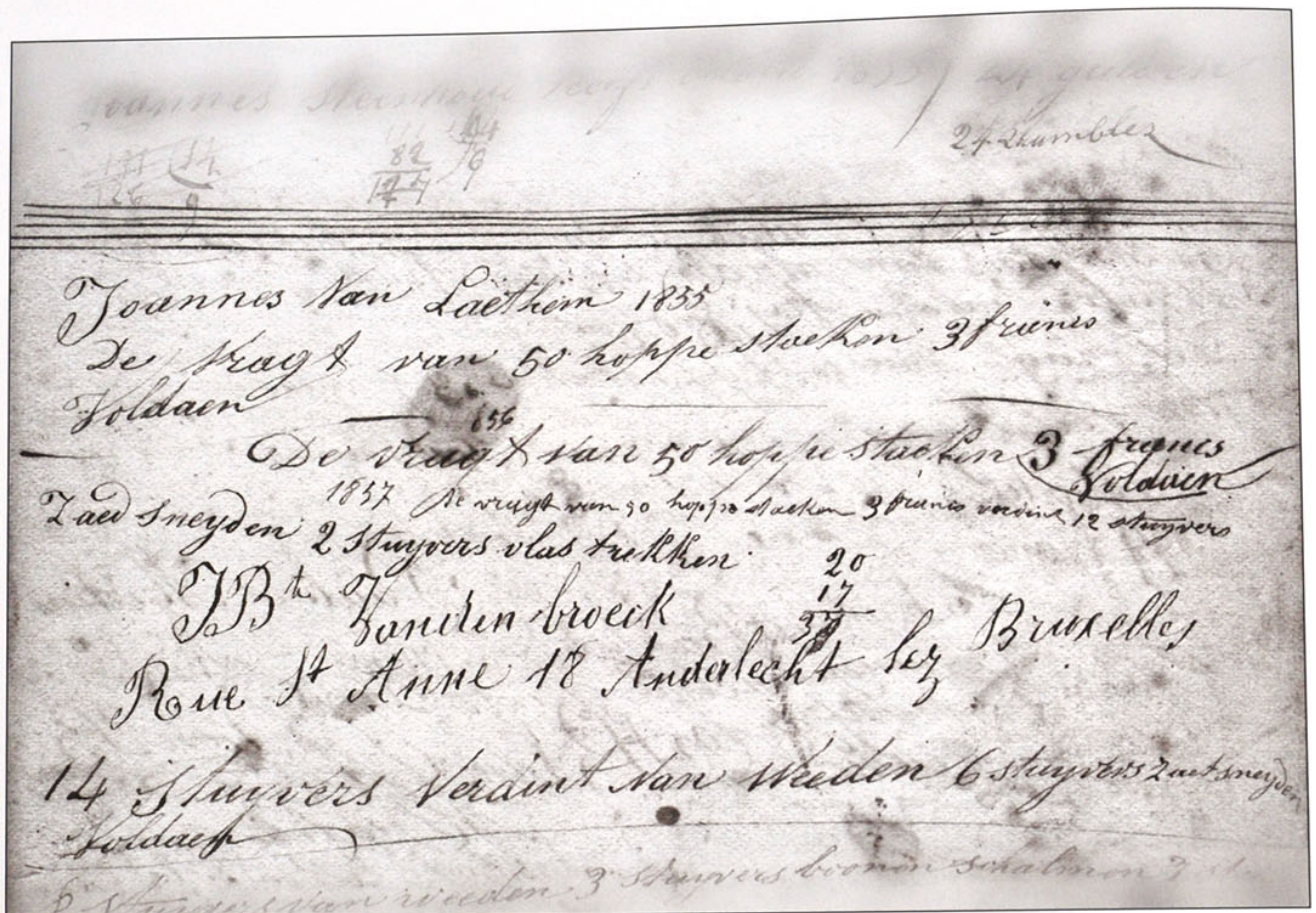 Joannes
24
82
Joannes Van Laethem 1855
De vragt van 50 hoppe staeken 3 francs
Voldaen
856
De vragt van 50 hoppe staeken 3 francs
Voldaen
1857 De vragt van 50 hoppe staeken 3 francs verdint 12 stuyvers
Zaed sneyden 2 stuyvers vlas trekken
20
17
37
JBte Vandenbroeck
Rue St Anne 18 Anderlecht lez Bruxelles
14 stuyvers verdint van weeden 6 stuyvers zaet sneyden
Voldaen
6 stuyvers van weeden 3 stuyvers boonen